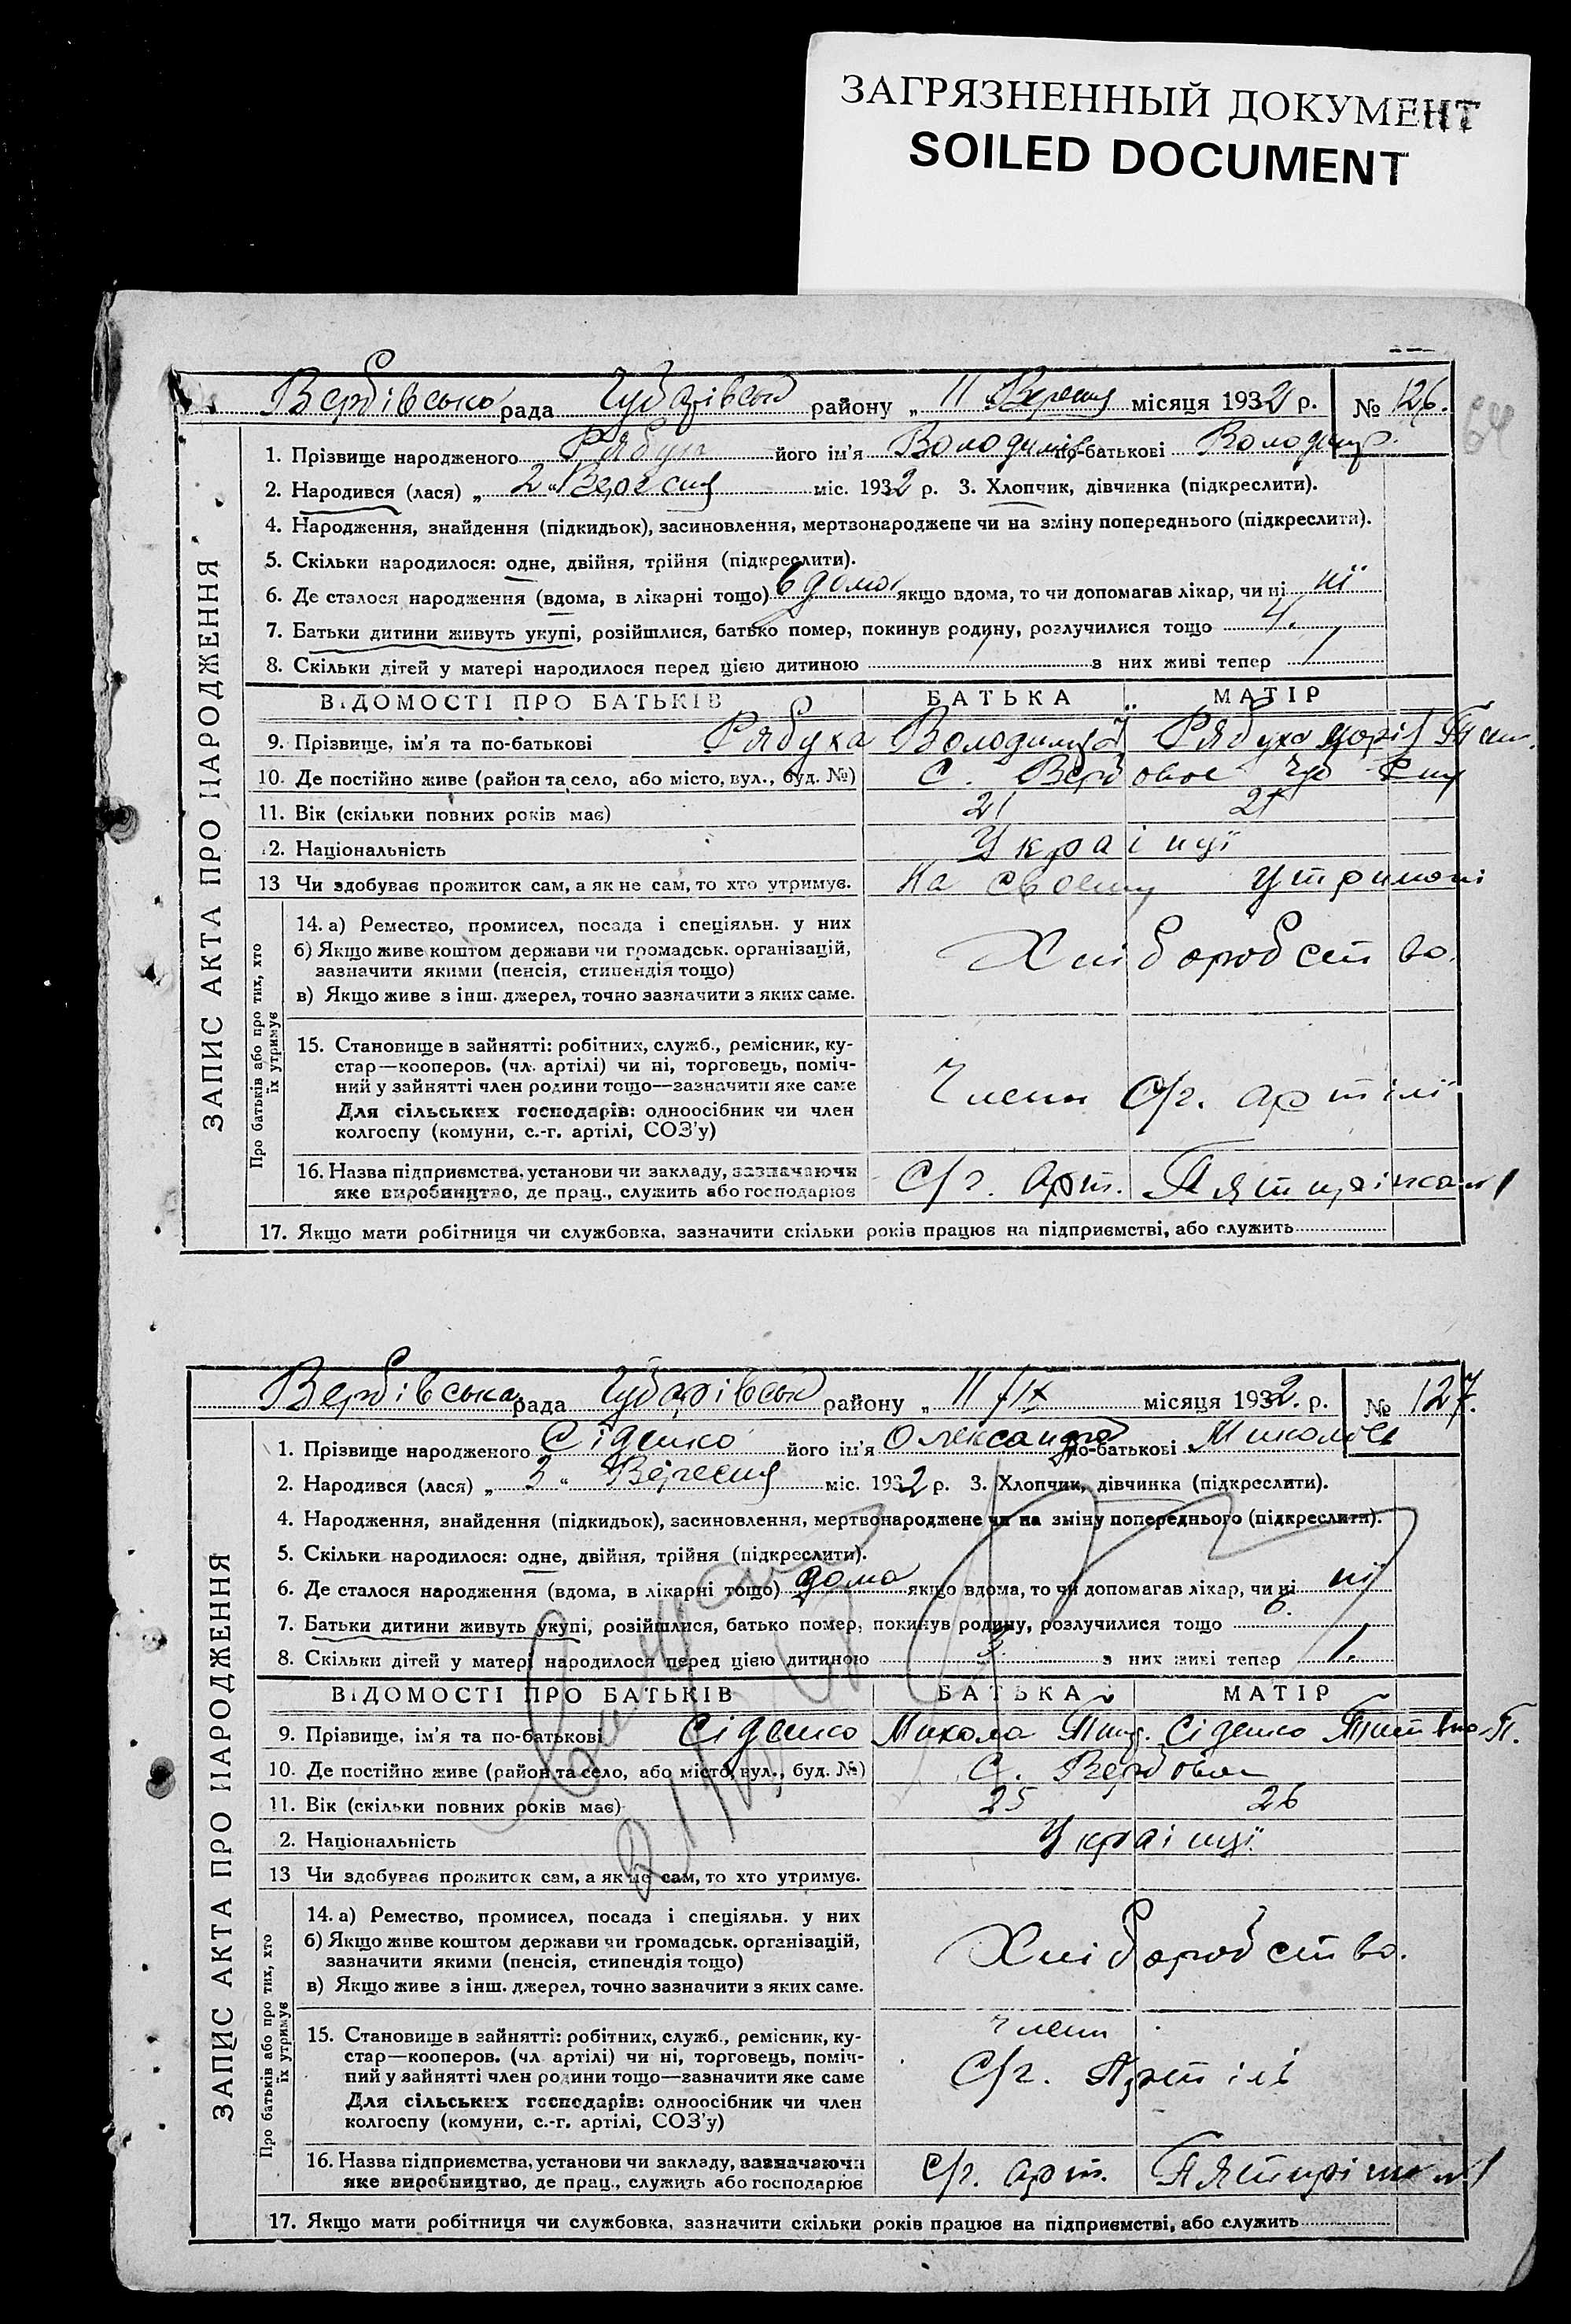 ЗАГРЯЗНЕННЫЙ ДОКУМЕНТ
SOILED DOCUMENT
64
Вербівська рада Чубарівськ району „ 11 Вересня місяця 1932 р. № 126.
ЗАПИС АКТА ПРО НАРОДЖЕННЯ
1. Прізвище народженого Рябуха його ім'я Володимир по-батькові Володимир.
2. Народився (лася) „ 2 " Вересня міс. 1932 р. 3. Хлопчик, дівчинка (підкреслити).
4. Народження, знайдення (підкидьок), засиновлення, мертвонароджене чи на зміну попереднього (підкреслити).
5. Скільки народилося: одне, двійня, трійня (підкреслити).
6. Де сталося народження (вдома, в лікарні тощо) вдома якщо вдома, то чи допомагав лікар, чи ні ні
7. Батьки дитини живуть укупі, розійшлися, батько помер, покинув родину, розлучилися тощо
8. Скільки дітей у матері народилося перед цією дитиною 1 з них живі тепер 1
ВІДОМОСТІ ПРО БАТЬКІВ БАТЬКА МАТІР
9. Прізвище, ім'я та по-батькові Рябуха Володимир Рябуха
10. Де постійно живе (район та село, або місто, вул., буд. №) С. Вербовое Чуб
11. Вік (скільки повних років має) 21 21
12. Національність Українці
13 Чи здобуває прожиток сам, а як не сам, то хто утримує. На своему утримані
Про батьків або про тих, хто їх утримує
14. а) Ремество, промисел, посада і спеціяльн. у них
б) Якщо живе коштом держави чи громадськ. організацій,
зазначити якими (пенсія, стипендія тощо)
Хліборобство.
в) Якщо живе з інш. джерел, точно зазначити з яких саме.
15. Становище в зайнятті: робітник, служб., ремісник, ку-
стар—кооперов. (чл. артілі) чи ні, торговець, поміч-
ний у зайнятті член родини тощо—зазначити яке саме
Члени С/г. артілі
Для сільських господарів: одноосібник чи член
колгоспу (комуни, с.-г. артілі, СОЗ'у)
16. Назва підприємства, установи чи закладу, зазначаючи
яке виробництво, де прац., служить або господарює С/г. Арт. Пятирічка №1
17. Якщо мати робітниця чи службовка, зазначити скільки років працює на підприємстві, або служить
Вербівська рада Чубарівськ району „ 11/IX місяця 1932. р. № 127.
ЗАПИС АКТА ПРО НАРОДЖЕННЯ
1. Прізвище народженого Сіденко його ім'я Олександр по-батькові Миколов
2. Народився (лася) „ 3 " Вересня міс. 1932 р. 3. Хлопчик, дівчинка (підкреслити).
4. Народження, знайдення (підкидьок), засиновлення, мертвонароджене чи на зміну попереднього (підкреслити).
5. Скільки народилося: одне, двійня, трійня (підкреслити).
6. Де сталося народження (вдома, в лікарні тощо) дома якщо вдома, то чи допомагав лікар, чи ні ні
7. Батьки дитини живуть укупі, розійшлися, батько помер, покинув родину, розлучилися тощо
8. Скільки дітей у матері народилося перед цією дитиною 3 з них живі тепер 1.
ВІДОМОСТІ ПРО БАТЬКІВ БАТЬКА МАТІР
9. Прізвище, ім'я та по-батькові Сіденко Микола Сіденко
10. Де постійно живе (район та село, або місто, вул., буд. №) С. Вербовое
11. Вік (скільки повних років має) 25 26
2. Національність Українці
13 Чи здобуває прожиток сам, а як не сам, то хто утримує.
Про батьків або про тих, хто їх утримує
14. а) Ремество, промисел, посада і спеціяльн. у них
б) Якщо живе коштом держави чи громадськ. організацій,
зазначити якими (пенсія, стипендія тощо)
Хліборобство.
в) Якщо живе з інш. джерел, точно зазначити з яких саме.
15. Становище в зайнятті: робітник, служб., ремісник, ку-
стар—кооперов. (чл. артілі) чи ні, торговець, поміч-
ний у зайнятті член родини тощо—зазначити яке саме
Члени С/г. Артілі
Для сільських господарів: одноосібник чи член
колгоспу (комуни, с.-г. артілі, СОЗ'у)
16. Назва підприємства, установи чи закладу, зазначаючи
яке виробництво, де прац., служить або господарює С/г. арт. Пятирічка №1
17. Якщо мати робітниця чи службовка, зазначити скільки років працює на підприємстві, або служить